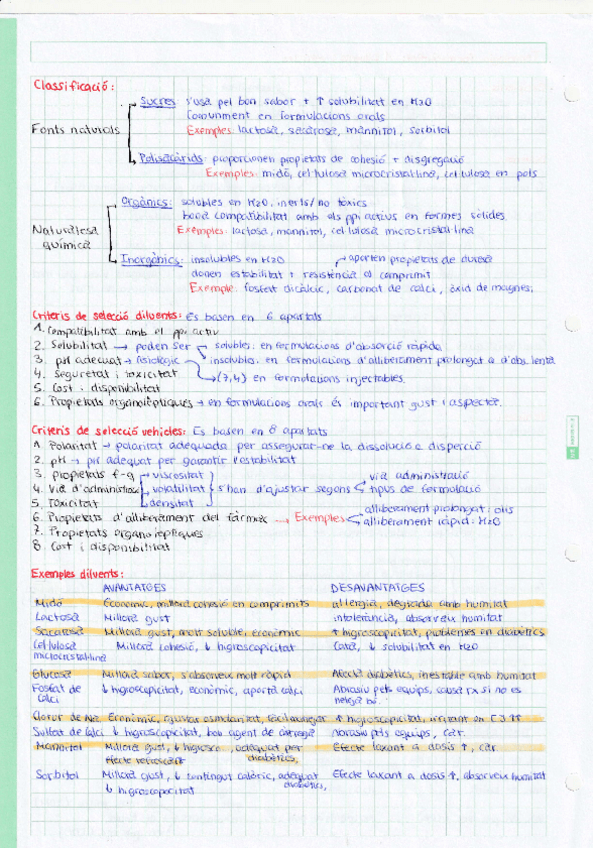 Classificació:
Sucres: s'usa pel bon sabor + ↑ solubilitat en H2O
Comunment en formulacions orals
Fonts naturals
Exemples: lactosa, sacarosa, mannitol, sorbitol
Polisacàrids: proporcionen propietats de cohesió + disgregació
Exemples: midó, cel·lulosa microcristal·lina, cel·lulosa en pols
Orgànics: solubles en H2O, inerts/no tòxics
bona compatibilitat amb els ppi actius en formes sòlides
Naturalesa química
Exemples: lactosa, mannitol, cel·lulosa microcristal·lina
Inorgànics: insolubles en H2O → aporten propietats de duresa
donen estabilitat + resistència al comprimit
Exemple: fosfat dicàlcic, carbonat de calci, òxid de magnesi
Criteris de selecció diluents: Es basen en 6 apartats
1. Compatibilitat amb el ppi actiu
2. Solubilitat → poden ser solubles: en formulacions d'absorció ràpida
3. pH adequat → fisiològic insolubles: en formulacions d'alliberament prolongat o d'abs. lenta
4. Seguretat i toxicitat (7,4) en formulacions injectables
5. Cost i disponibilitat
6. Propietats organolèptiques → en formulacions orals és important gust i aspecte.
Criteris de selecció vehicles: Es basen en 8 apartats
1. Polaritat → polaritat adequada per assegurar-ne la dissolució o dispersió
2. pH → pH adequat per garantir l'estabilitat
3. propietats f-q viscositat via administració
4. Via d'administració volatilitat s'han d'ajustar segons tipus de formulació
5. Toxicitat densitat alliberament prolongat: olis
6. Propietats d'alliberament del fàrmac → Exemples alliberament ràpid: H2O
7. Propietats organolèptiques
8. Cost i disponibilitat
Exemples diluents:
AVANTATGES DESAVANTATGES
Midó Econòmic, millora cohesió en comprimits al·lèrgia, degrada amb humitat
Lactosa Millora gust intolerància, absorveix humitat
Sacarosa Millora gust, molt soluble, econòmic ↑ higroscopicitat, problemes en diabètics
Cel·lulosa microcristal·lina Millora cohesió, ↓ higroscopicitat Cara, ↓ solubilitat en H2O
Glucosa Millora sabor, s'absorveix molt ràpid Afecta diabètics, inestable amb humitat
Fosfat de calci ↓ higroscopicitat, econòmic, aporta calci Abrasiu pels equips, causa rx si no es neteja bé.
Clorur de Na Econòmic, ajustar osmolaritat, ↑ higroscopicitat, irritant en [ ] ↑↑
Sulfat de calci ↓ higroscopicitat, bon agent de càrrega Abrasiu pels equips, car.
Mannitol Millora gust, ↓ higrosco., adequat per diabètics, Efecte laxant a dosis ↑, car
efecte refrescant
Sorbitol Millora gust, ↓ contingut calòric, adequat diabètics, Efecte laxant a dosis ↑, absorveix humitat
↓ higroscopicitat